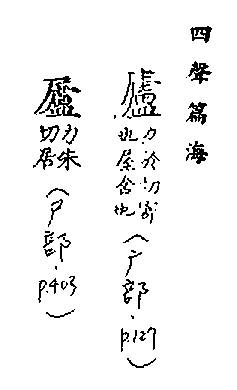 四聲篇海
廬力於切寄也屋舍也(广部.p.127)
力朱切居(尸部.p.403)